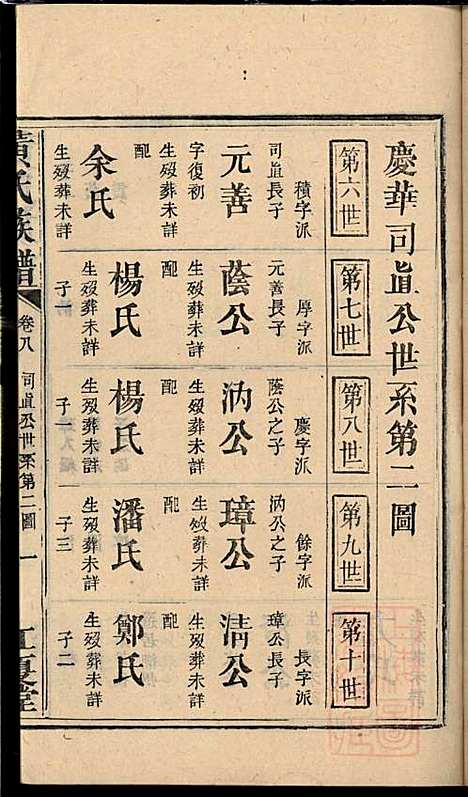 慶華司直公世系第二圖
第六世
積字派
司直長子
元善
字復初
生歿葬未詳
配
余氏
生歿葬未詳
第七世
厚字派
元善長子
蔭公
生歿葬未詳
配
楊氏
生歿葬未詳
子一
第八世
慶字派
蔭公之子
汭公
生歿葬未詳
配
楊氏
生歿葬未詳
子一
第九世
餘字派
汭公之子
璋公
生歿葬未詳
配
潘氏
生歿葬未詳
子三
第十世
長字派
璋公長子
淸公
生歿葬未詳
配
鄭氏
生歿葬未詳
子二
黃氏族譜
卷八
司直公世系第二圖
一
江夏堂